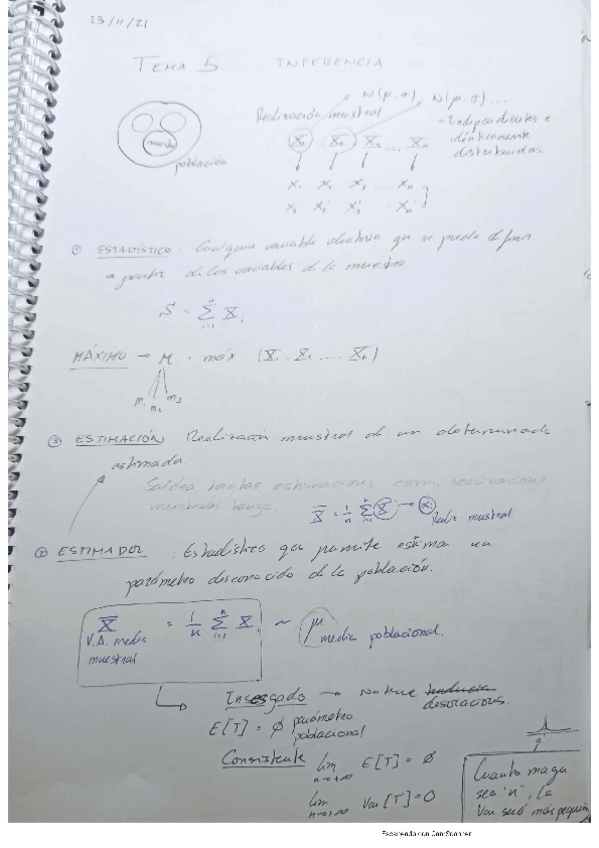 23/11/21
TEMA 5 INFERENCIA
N(μ,σ) N(μ,σ)...
Realización muestral
- Independientes e
idénticamente
distribuidas
muestra
población
X₁ X₂ X₃ ... Xₙ
x₁ x₂ x₃ .... xₙ
x₁' x₂' x₃' .. xₙ'
① ESTADÍSTICO: Cualquier variable aleatoria que se puede definir
a partir de las variables de la muestra
S = Σᵢ₌₁ⁿ Xᵢ
MÁXIMO → M = máx (X₁, X₂ .... Xₙ)
m₁ m₂ m₃
③ ESTIMACIÓN Realización muestral de un determinado
estimador.
Saldrá tantas estimaciones como realizaciones
muestrales tenga.
X̄ = 1/n Σᵢ₌₁ⁿ X → x̄
Media muestral
② ESTIMADOR : Estadístico que permite estimar un
parámetro desconocido de la población.
X̄ = 1/n Σᵢ₌₁ⁿ Xᵢ ~ μ
V.A. media
muestral
media poblacional.
Insesgado → No tiene tendencia
desviaciones.
E[T] = ϕ parámetro
poblacional
Consistente lim n→+∞ E[T] = ϕ
lim n→+∞ Var[T] = 0
Cuanto mayor
sea "n", la
Var será más pequeña
Escaneado con CamScanner